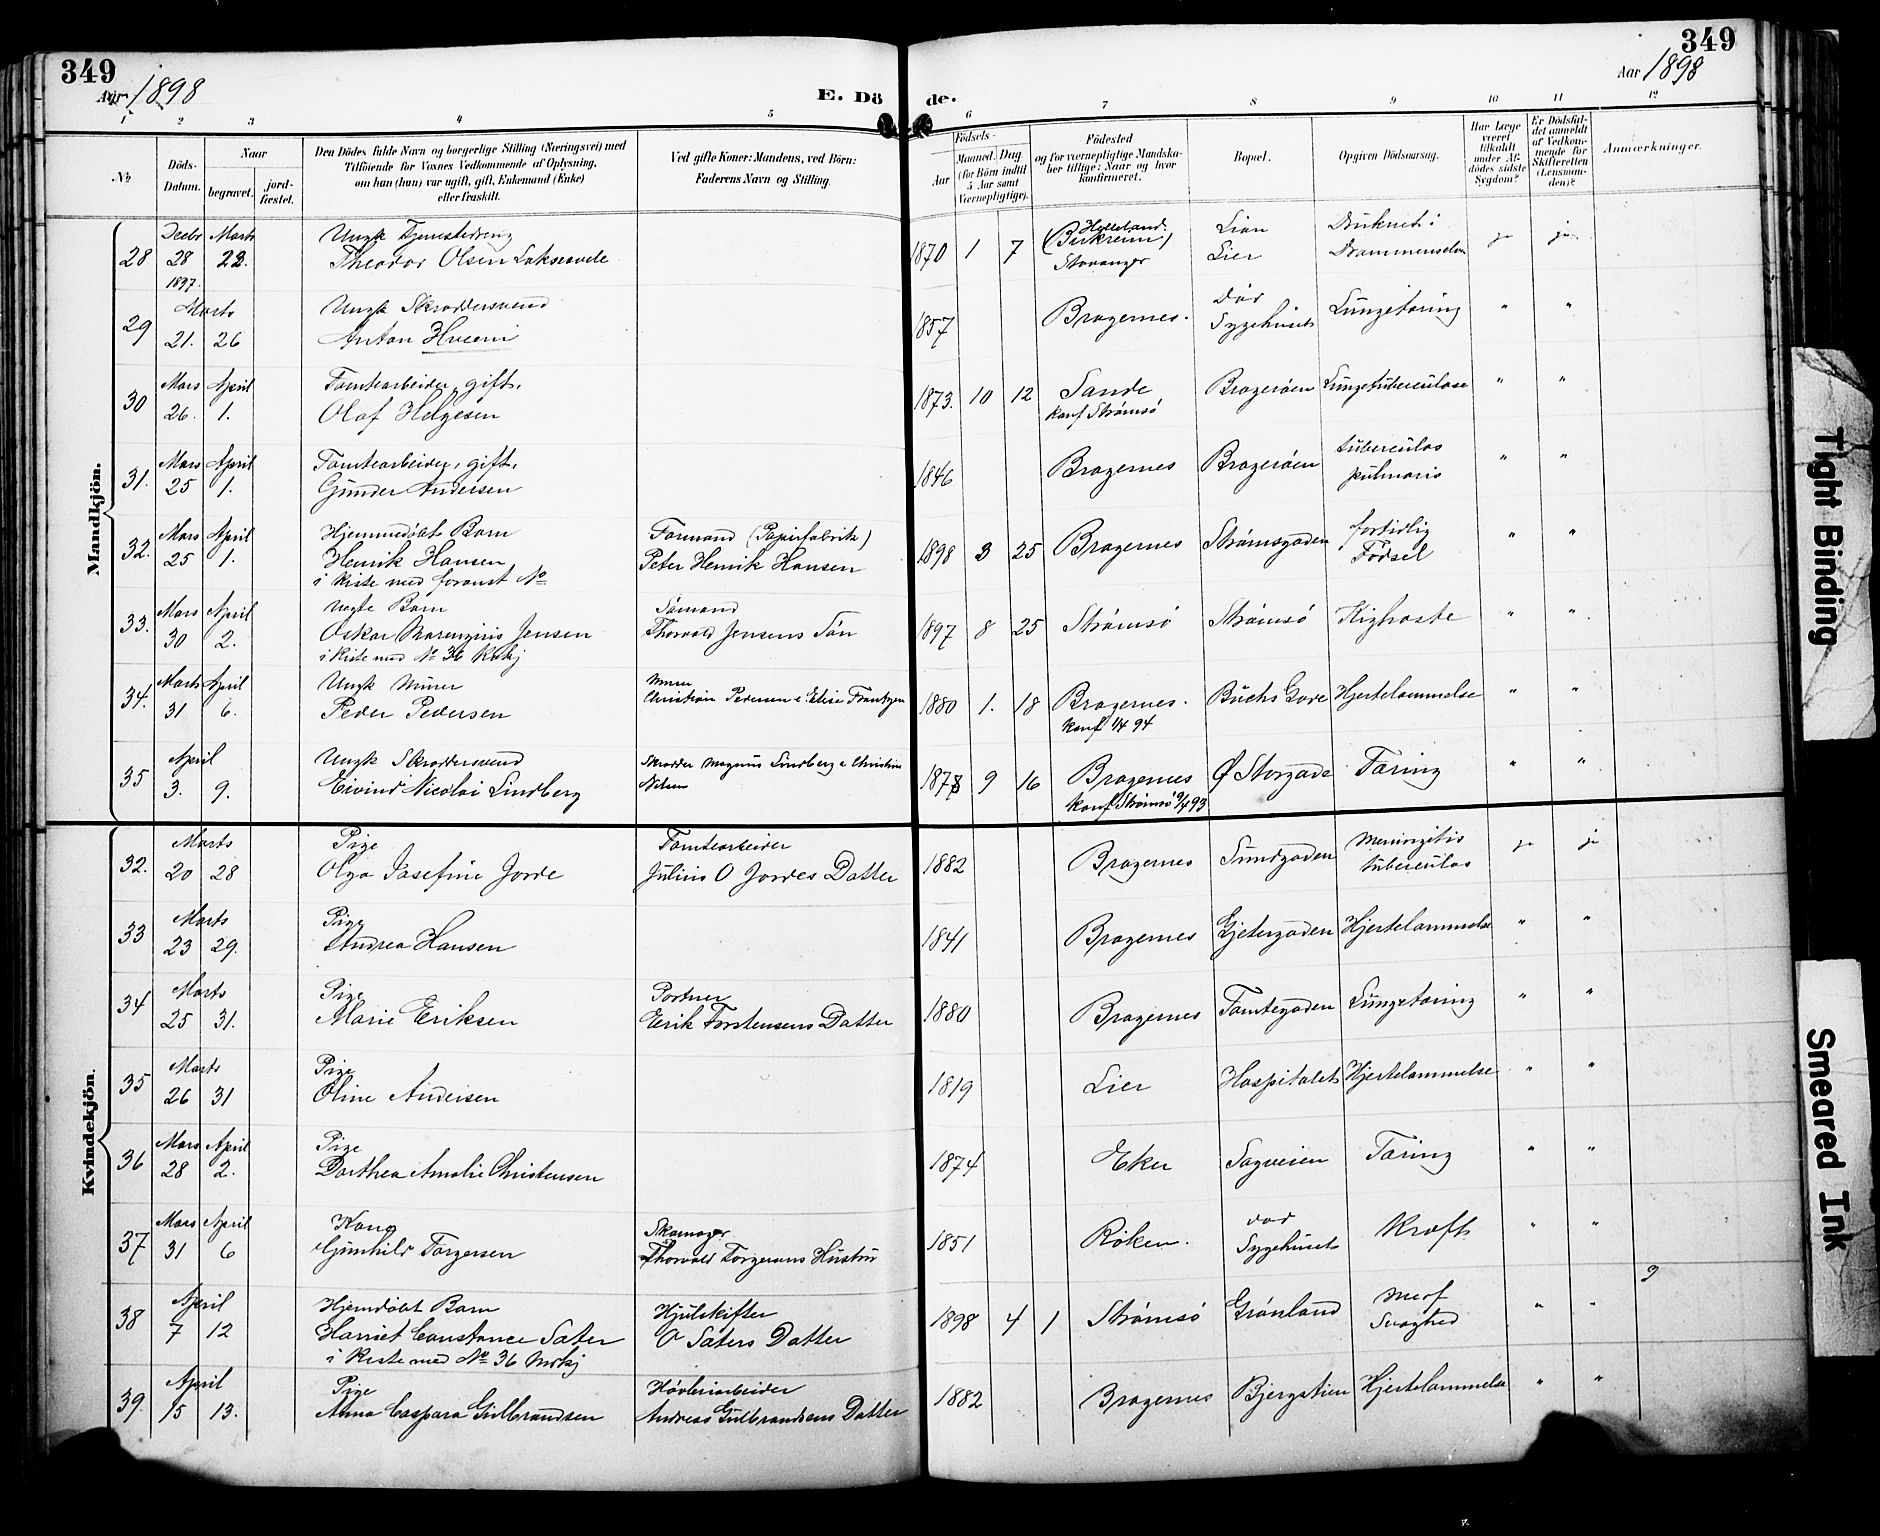 349
Aar 1898
E. Dö
de.
349
Aar 1898
1 2 3 4 5 6 7 8 9 10 11 12
No
Döds-
Datum.
Naar
begravet.
jord-
fæstet.
Den Dödes fulde Navn og borgerlige Stilling (Næringsvei) med
Tilföiende for Voxnes Vedkommende af Oplysning,
om han (hun) var ugift, gift, Enkemand (Enke)
eller fraskilt.
Ved gifte Koner: Mandens, ved Börn:
Faderens Navn og Stilling.
Födsels-
Aar
Maaned. Dag
(for Börn indtil
5 Aar samt
Værnepligtige).
Födested
og for værnepligtige Mandska-
ber tillige: Naar og hvor
konfirmeret.
Bopæl.
Opgiven Dödsaarsag.
Har Læge
været
tilkaldt
under Af-
dödes sidste
Sygdom?
Er Dödsfal-
det anmeldt
af Vedkom-
mende for
Skifteretten
(Lensman-
den)?
Anmærkninger.
Mandkjön.
Decbr Marts Ungk Tjenestedreng Helleland Lian Druknet i
28 28 22. Theodor Olsen Laksesvele 1870 1 7 (Birkreim) Lier Drammenselven ja ja
1897. Stavanger
Marts Ungk Skræddersvend død
29 21. 26 Anton Hveem 1857 Bragernes. Sygehuset Lungetæring " "
Mars April Tomtearbeider, gift.
30 26. 1. Olaf Helgesen 1873. 10 12 Sande Bragerøen Lungetuberculose " "
konf Strømsö
Mars April Tomtearbeider, gift. tuberculos
31. 25 1. Gunder Andersen 1846 Bragernes Bragerøen pulmonis " "
Mars April Hjemmedøbt Barn Formand (Papirfabrik) fortidlig
32. 25 1. Henrik Hansen Peter Henrik Hansen 1898 3 25 Bragernes Strømsgaden Födsel " "
i kiste med foranst No
Mars April Uægte Barn Sømand
33. 30 2. Oskar Marenzius Jensen Thorvald Jensens Søn 1897 8 25 Strømsö Strømsö Kighoste " "
i kiste med No 36 Kvkj
Marts April Ungk Murer Murer
34. 31 6. Peder Pedersen Christian Pedersen & Elise Frantzen 1880 1. 18 Bragernes. Buchs Gade Hjertelammelse " "
konf 1/4 94
April Ungk Skræddersvend Skrædder Magnus Lindberg & Christine
35 3. 9. Eivind Nicolai Lindberg Nilsen 1878 9 16 Bragernes Ø Storgade Tæring " "
konf Strømsö 9/4 93
Kvindekjön.
Marts Pige Tomtearbeider Meningitis
32. 20 28 Olga Josefine Jorde Julius O Jordes Datter 1882 Bragernes Sundgaden tuberculos ja ja
Marts Pige
33 23 29. Andrea Hansen 1841 Bragernes Gjetergaden Hjertelammelse " "
Marts Pige Portner
34 25 31. Marie Eriksen Erik Torstensens Datter 1880 Bragernes Tomtegaden Lungetæring " "
Marts Pige
35 26 31 Oline Andersen 1819 Lier Hospitalet Hjertelammelse " "
Mars April Pige
36 28 2. Dorthea Amalie Christensen 1874 Eker Sagveien Tæring " "
Mars April Kone Skomager død
37 31 6 Gunhild Torgersen Thorvald Torgersens Hustru 1851 Röken. Sygehuset Kræft " "
9
April Hjemdøbt Barn Hjulskifter Med
38 7 12 Harriet Constance Sæter O Sæters Datter 1898 4 1 Strømsö Grønland Svaghed " "
i kiste med No 36 Mkj
April Pige Høvleriarbeider
39. 15 13. Anna Caspara Gulbrandsen Andreas Gulbrandsens Datter 1882 Bragernes Bjergstien Hjertelammelse " "
Tight Binding
Smeared Ink